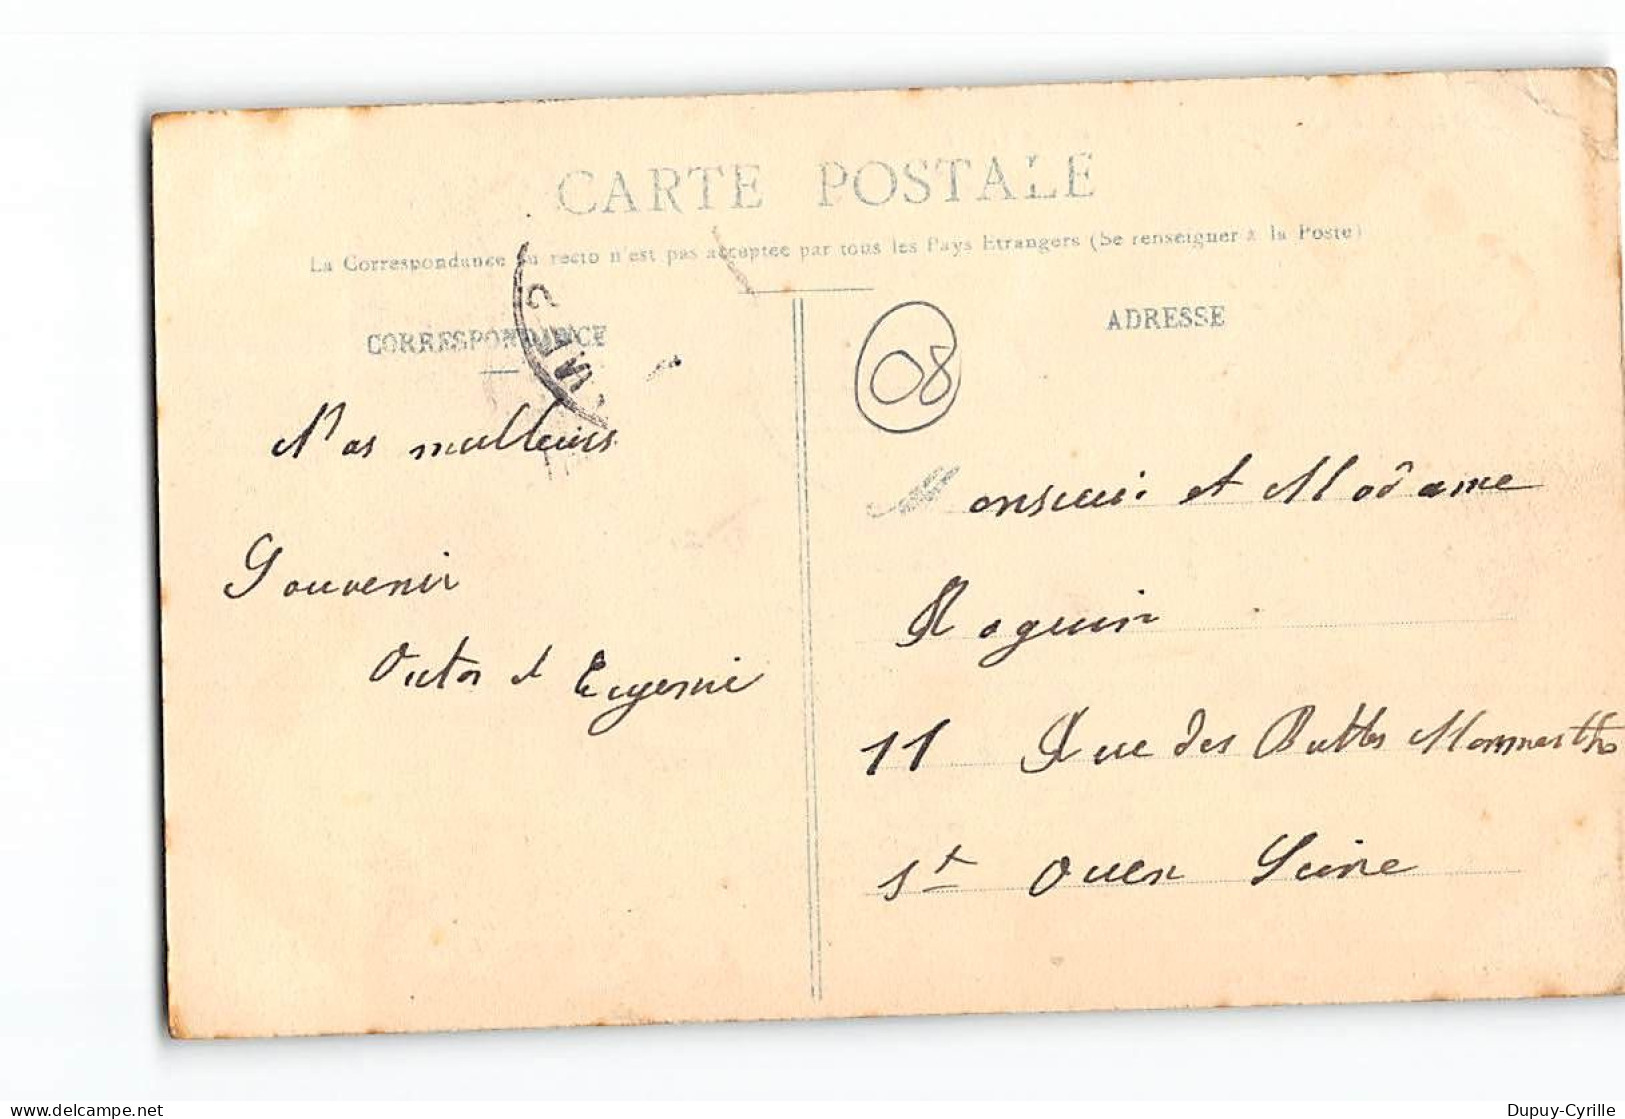 CARTE POSTALE
La Correspondance au recto n'est pas acceptée par tous les Pays Etrangers (Se renseigner à la Poste)
CORRESPONDANCE
ADRESSE
08
Nos meilleurs
Souvenir
Victor et Eugenie
Monsieur et Madame
Roguin
11 Rue des Buttes Montmartre
St Ouen Seine
Dupuy-Cyrille